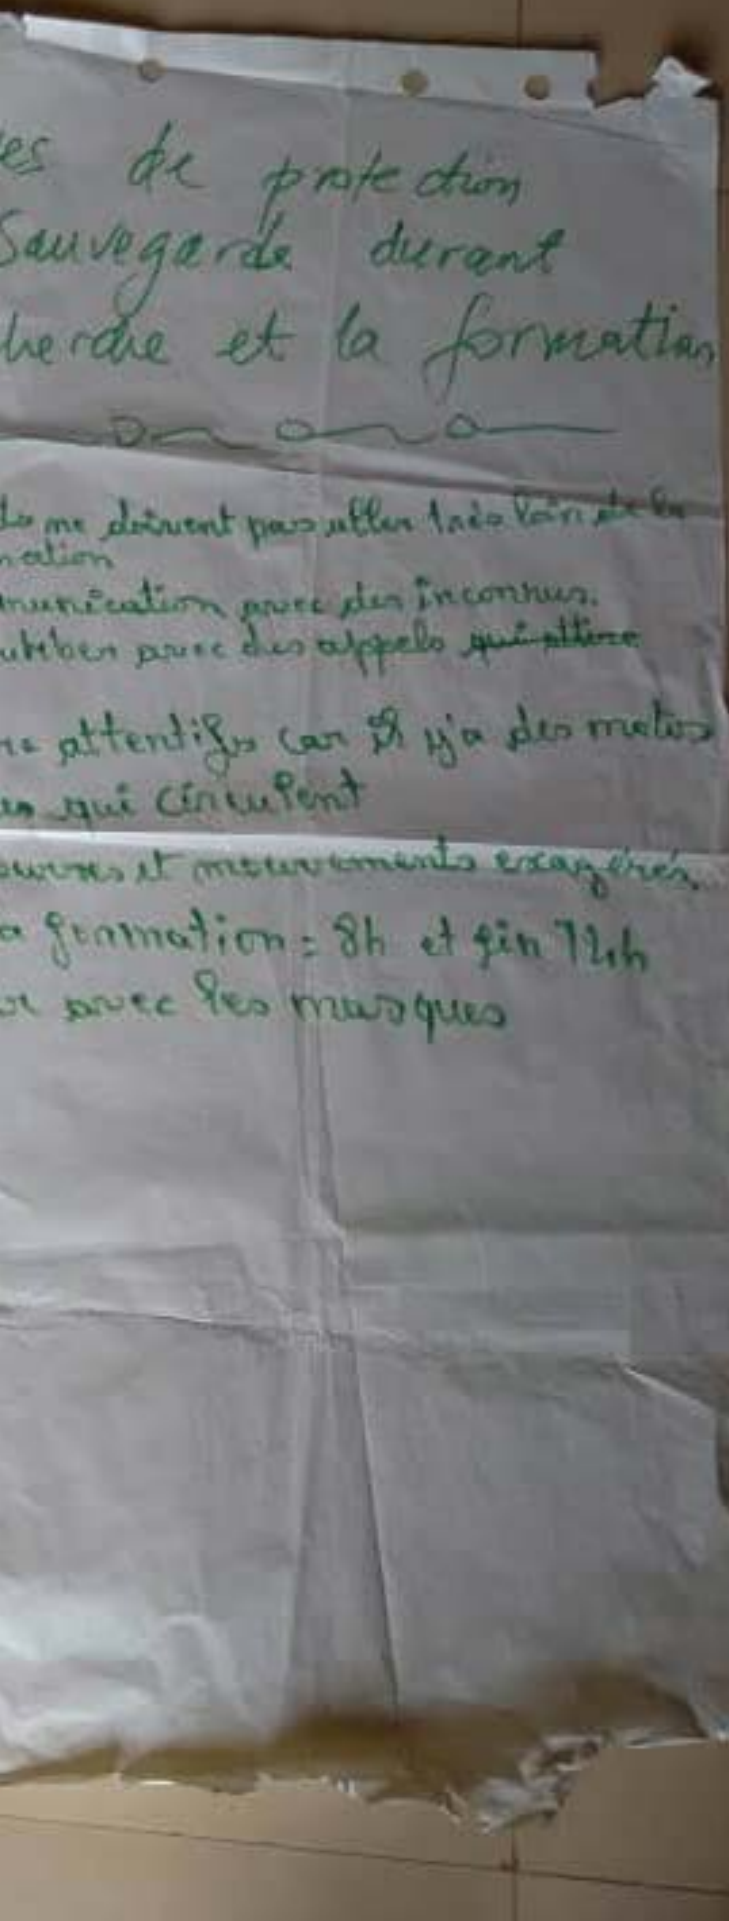 es de protection
Sauvegarde durant
herche et la formation
ts ne doivent pas aller très loin de la
mation
munication avec des inconnus.
avec des appels qui attire
re attentifs car il y'a des motos
qui circulent
ourses et mouvements exagérés
a formation = 8h et fin 12h
er avec les masques